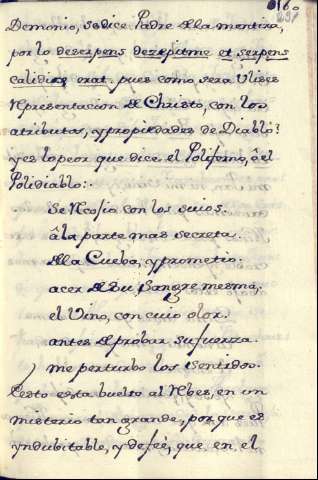 Demonio, se dice Padre de la mentira,
por lo de serpens dezepit me et serpens
calidior erat. pues como sera Ulises
representacion de Christo, con los
atributos, y propiedades de Diablo?
y es lo peor que dice el Polifemo, ô el
Polidiablo:.
Se recosio con los suios.
â la parte mas secreta.
de la Cueba, y prometio.
acer de su sangre mesma,
el Vino, con cuio olor.
antes de probar su fuerza.
me perturbo los sentidos.
Y esto esta buelto al rebes, en un
misterio tan grande, por que es
yndubitable, y de feé, que en el